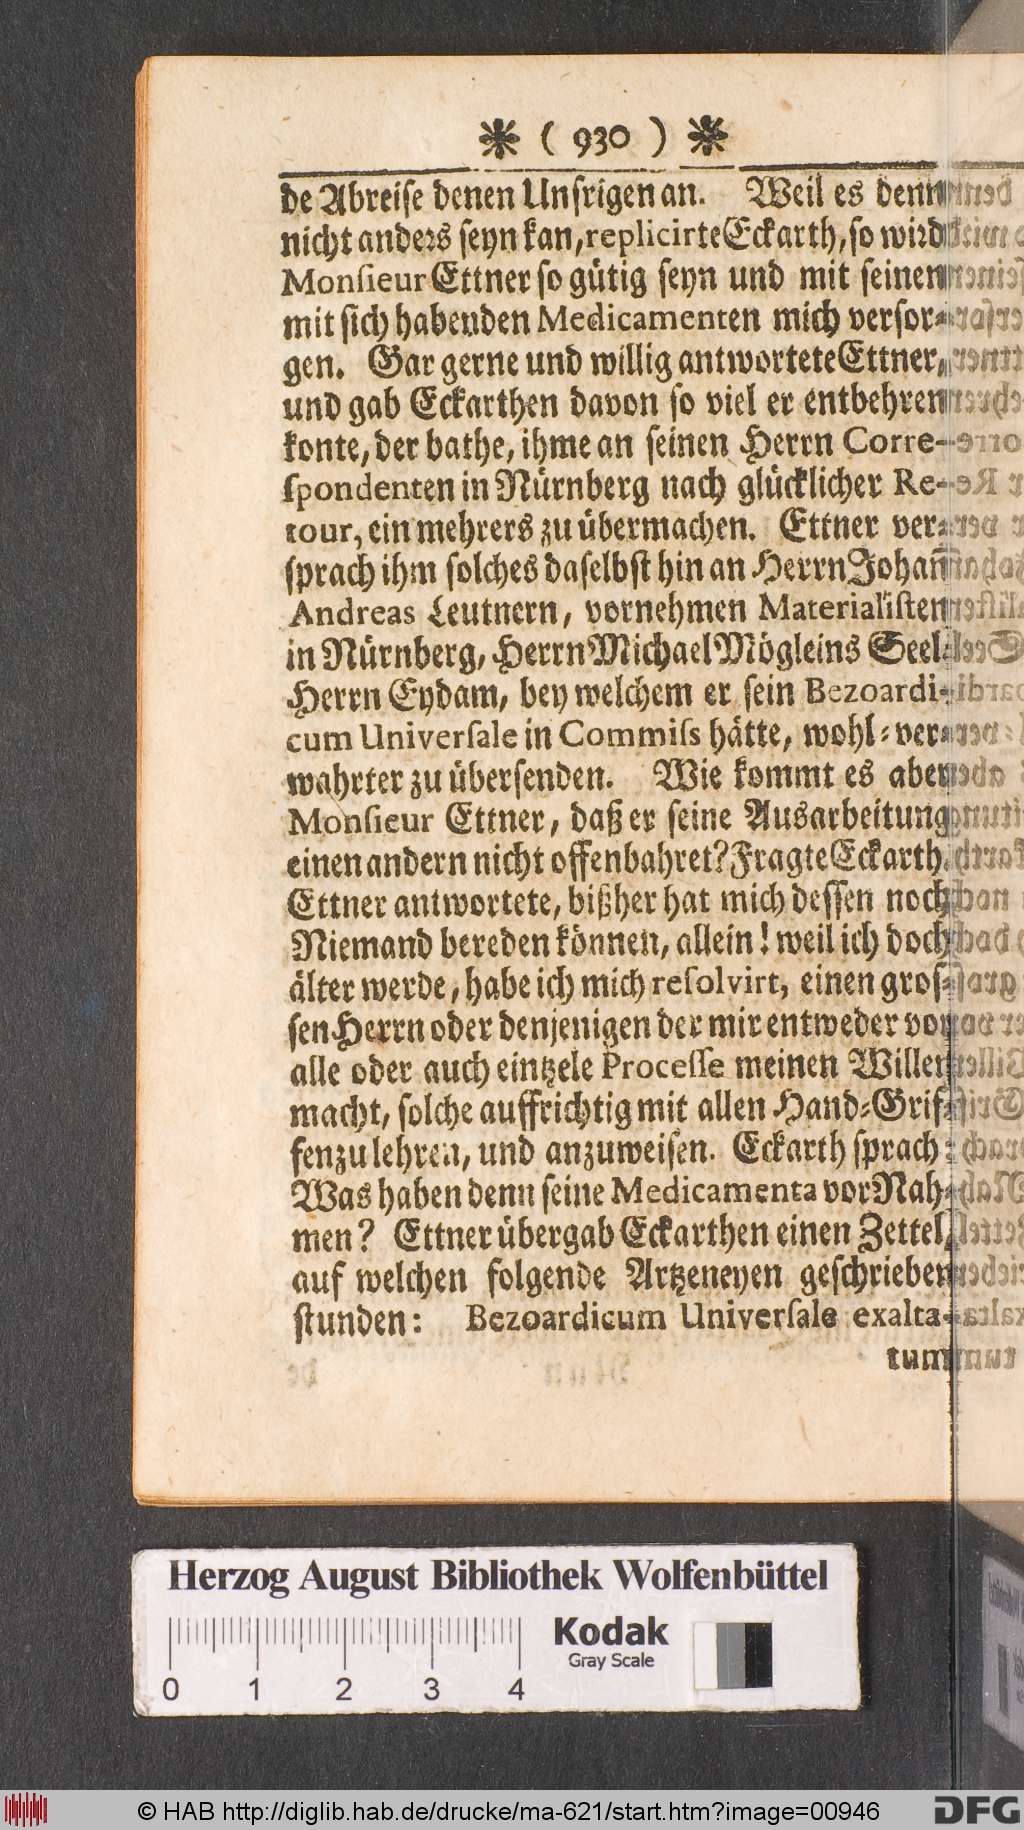 ( 930 )
de Abreise denen Unsrigen an. Weil es denn
nicht anders seyn kan, replicirte Eckarth, so wird
Monsieur Ettner so gütig seyn und mit seinen
mit sich habenden Medicamenten mich versor-
gen. Gar gerne und willig antwortete Ettner,
und gab Eckarthen davon so viel er entbehren
konte, der bathe, ihme an seinen Herrn Corre-
spondenten in Nürnberg nach glücklicher Re-
tour, ein mehrers zu übermachen. Ettner ver-
sprach ihm solches daselbst hin an Herrn Johañ
Andreas Leutnern, vornehmen Materialisten
in Nürnberg, Herrn Michael Mögleins Seel.
Herrn Eydam, bey welchem er sein Bezoardi-
cum Universale in Commiss hätte, wohl-ver-
wahrter zu übersenden. Wie kommt es aber
Monsieur Ettner, daß er seine Ausarbeitung
einen andern nicht offenbahret? Fragte Eckarth.
Ettner antwortete, bißher hat mich dessen noch
Niemand bereden können, allein! weil ich doch
älter werde, habe ich mich resolvirt, einen gros-
sen Herrn oder denjenigen der mir entweder vor
alle oder auch eintzele Processe meinen Willen
macht, solche auffrichtig mit allen Hand-Grif-
fen zu lehren, und anzuweisen. Eckarth sprach:
Was haben denn seine Medicamenta vor Nah-
men? Ettner übergab Eckarthen einen Zettel,
auf welchen folgende Artzeneyen geschrieben
stunden: Bezoardicum Universale exalta-
tum
Herzog August Bibliothek Wolfenbüttel
Kodak
Gray Scale
0 1 2 3 4
© HAB http://diglib.hab.de/drucke/ma-621/start.htm?image=00946
DFG